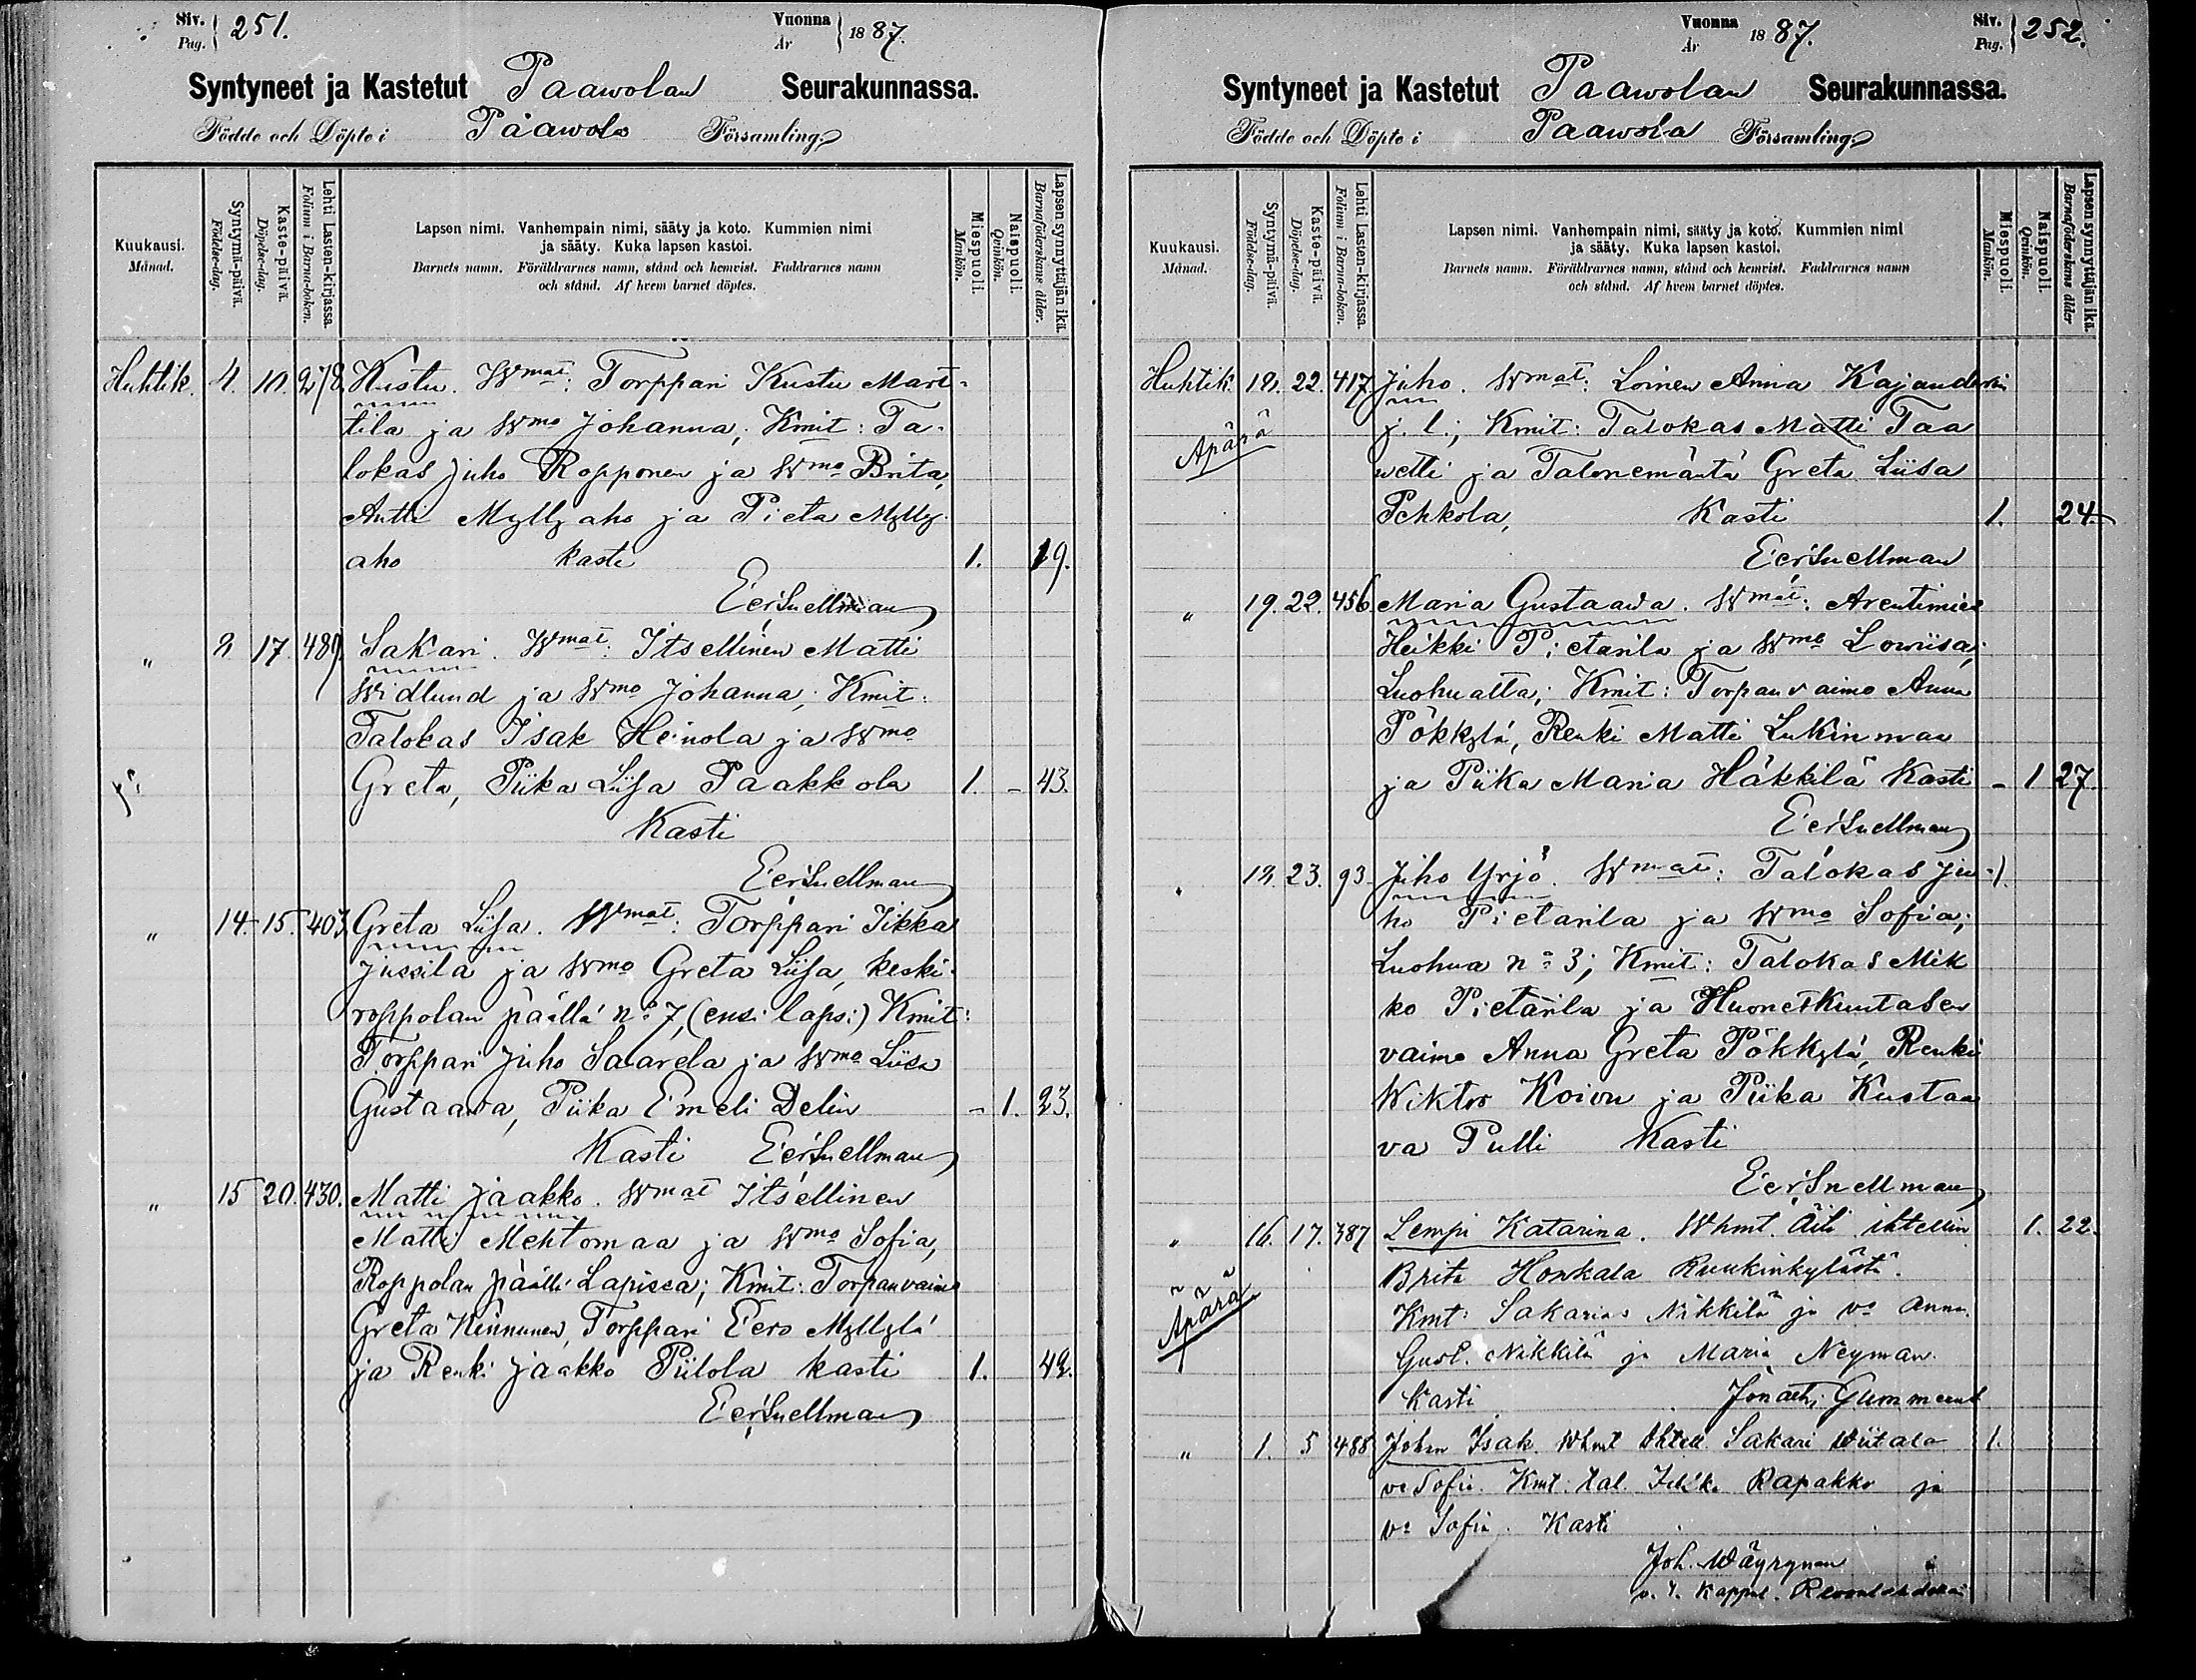 Siv. Pag. 251. Vuonna År 1887.
Syntyneet ja Kastetut Paawolan Seurakunnassa.
Födde och Döpte i Paawola Församling.
Kuukausi. Månad.
Syntymä-päivä. Födelse-dag.
Kaste-päivä. Döpelse-dag.
Lehti Lasten-kirjassa. Folium i Barna-boken.
Lapsen nimi. Vanhempain nimi, sääty ja koto. Kummien nimi
ja sääty. Kuka lapsen kastoi.
Barnets namn. Föräldrarnes namn, stånd och hemvist. Faddrarnes namn
och stånd. Af hvem barnet döptes.
Miespuoli. Mankön.
Naispuoli. Qvinkön.
Lapsen synnyttäjän ikä. Barnaföderskans ålder.
Huhtik. 4. 10. 278. Kustu. Wmat: Torppari Kustu Mart-
tila ja Wmo Johanna; Kmit: Ta-
lokas Juho Ropponen ja Wmo Brita,
Antti Myllyaho ja Pieta Mylly-
aho kasti 1. 19.
Eer Snellman
" 8 17. 489. Sakari. Wmat: Itsellinen Matti
Widlund ja Wmo Johanna; Kmit:
Talokas Isak Heinola ja Wmo
Greta, Piika Liisa Paakkola 1. - 43.
Kasti
Eer Snellman
" 14. 15. 403. Greta Liisa. Wmat: Torppari Iikka
Jussila ja Wmo Greta Liisa, keski-
roppolan päällä no 7, (ensi lapsi) Kmit:
Torppari Juho Saarela ja Wmo Liisa
Gustaava, Piika Emeli Delin - 1. 23.
Kasti Eer Snellman
" 15 20. 430. Matti Jaakko. Wmat Itsellinen
Matti Mehtomaa ja Wmo Sofia,
Roppolan päällä Lapissa; Kmit: Torpanvaimo
Greta Kinnunen, Torppari Eero Myllylä
ja Renki Jaakko Piilola kasti 1. 42.
Eer Snellman
Vuonna År 1887. Siv. Pag. 252.
Syntyneet ja Kastetut Paawolan Seurakunnassa.
Födde och Döpte i Paawola Församling.
Kuukausi. Månad.
Syntymä-päivä. Födelse-dag.
Kaste-päivä. Döpelse-dag.
Lehti Lasten-kirjassa. Folium i Barna-boken.
Lapsen nimi. Vanhempain nimi, sääty ja koto. Kummien nimi
ja sääty. Kuka lapsen kastoi.
Barnets namn. Föräldrarnes namn, stånd och hemvist. Faddrarnes namn
och stånd. Af hvem barnet döptes.
Miespuoli. Mankön.
Naispuoli. Qvinkön.
Lapsen synnyttäjän ikä. Barnaföderskans ålder
Huhtik. 18. 22. 417 Juho. Wmat: Loinen Anna Kajanderin
Äpärä j. l.; Kmit: Talokas Matti Taa
wetti ja Talonemäntä Greta Liisa
Pehkola, Kasti 1. 24.
Eer Snellman
" 19. 22. 456. Maria Gustaava. Wmat: Arentimies
Heikki Pietarila ja Wmo Lowiisa;
Luohualta; Kmit: Torpanvaimo Anna
Pökkylä, Renki Matti Lukinmaa
ja Piika Maria Häkkilä Kasti - 1 27.
Eer Snellman
" 18. 23. 93. Juho Yrjö. Wmat: Talokas Ju- 1.
ho Pietarila ja Wmo Sofia;
Luohua no 3; Kmit: Talokas Mik
ko Pietarila ja Huoneskuntasen
vaimo Anna Greta Pökkylä, Renki
Wiktor Koivu ja Piika Kustaa
va Pulli Kasti
Eer Snellman
" 16. 17. 387 Lempi Katarina. Whmt. Äiti ihtellin 1. 22.
Brita Honkala Ruukinkylästä.
Äpärä Kmt: Sakarias Nikkilä ja vo Anna
Gust. Nikkilä ja Maria Neyman.
Kasti Jonath. Gummerus
" 1. 5 488 Johan Isak. Whmt Ihtell. Sakari Wiitala 1.
vo Sofia. Kmt. tal. Rapakko ja
vo Sofia. Kasti
Joh. Wäyrynen
v. t. Kappal.